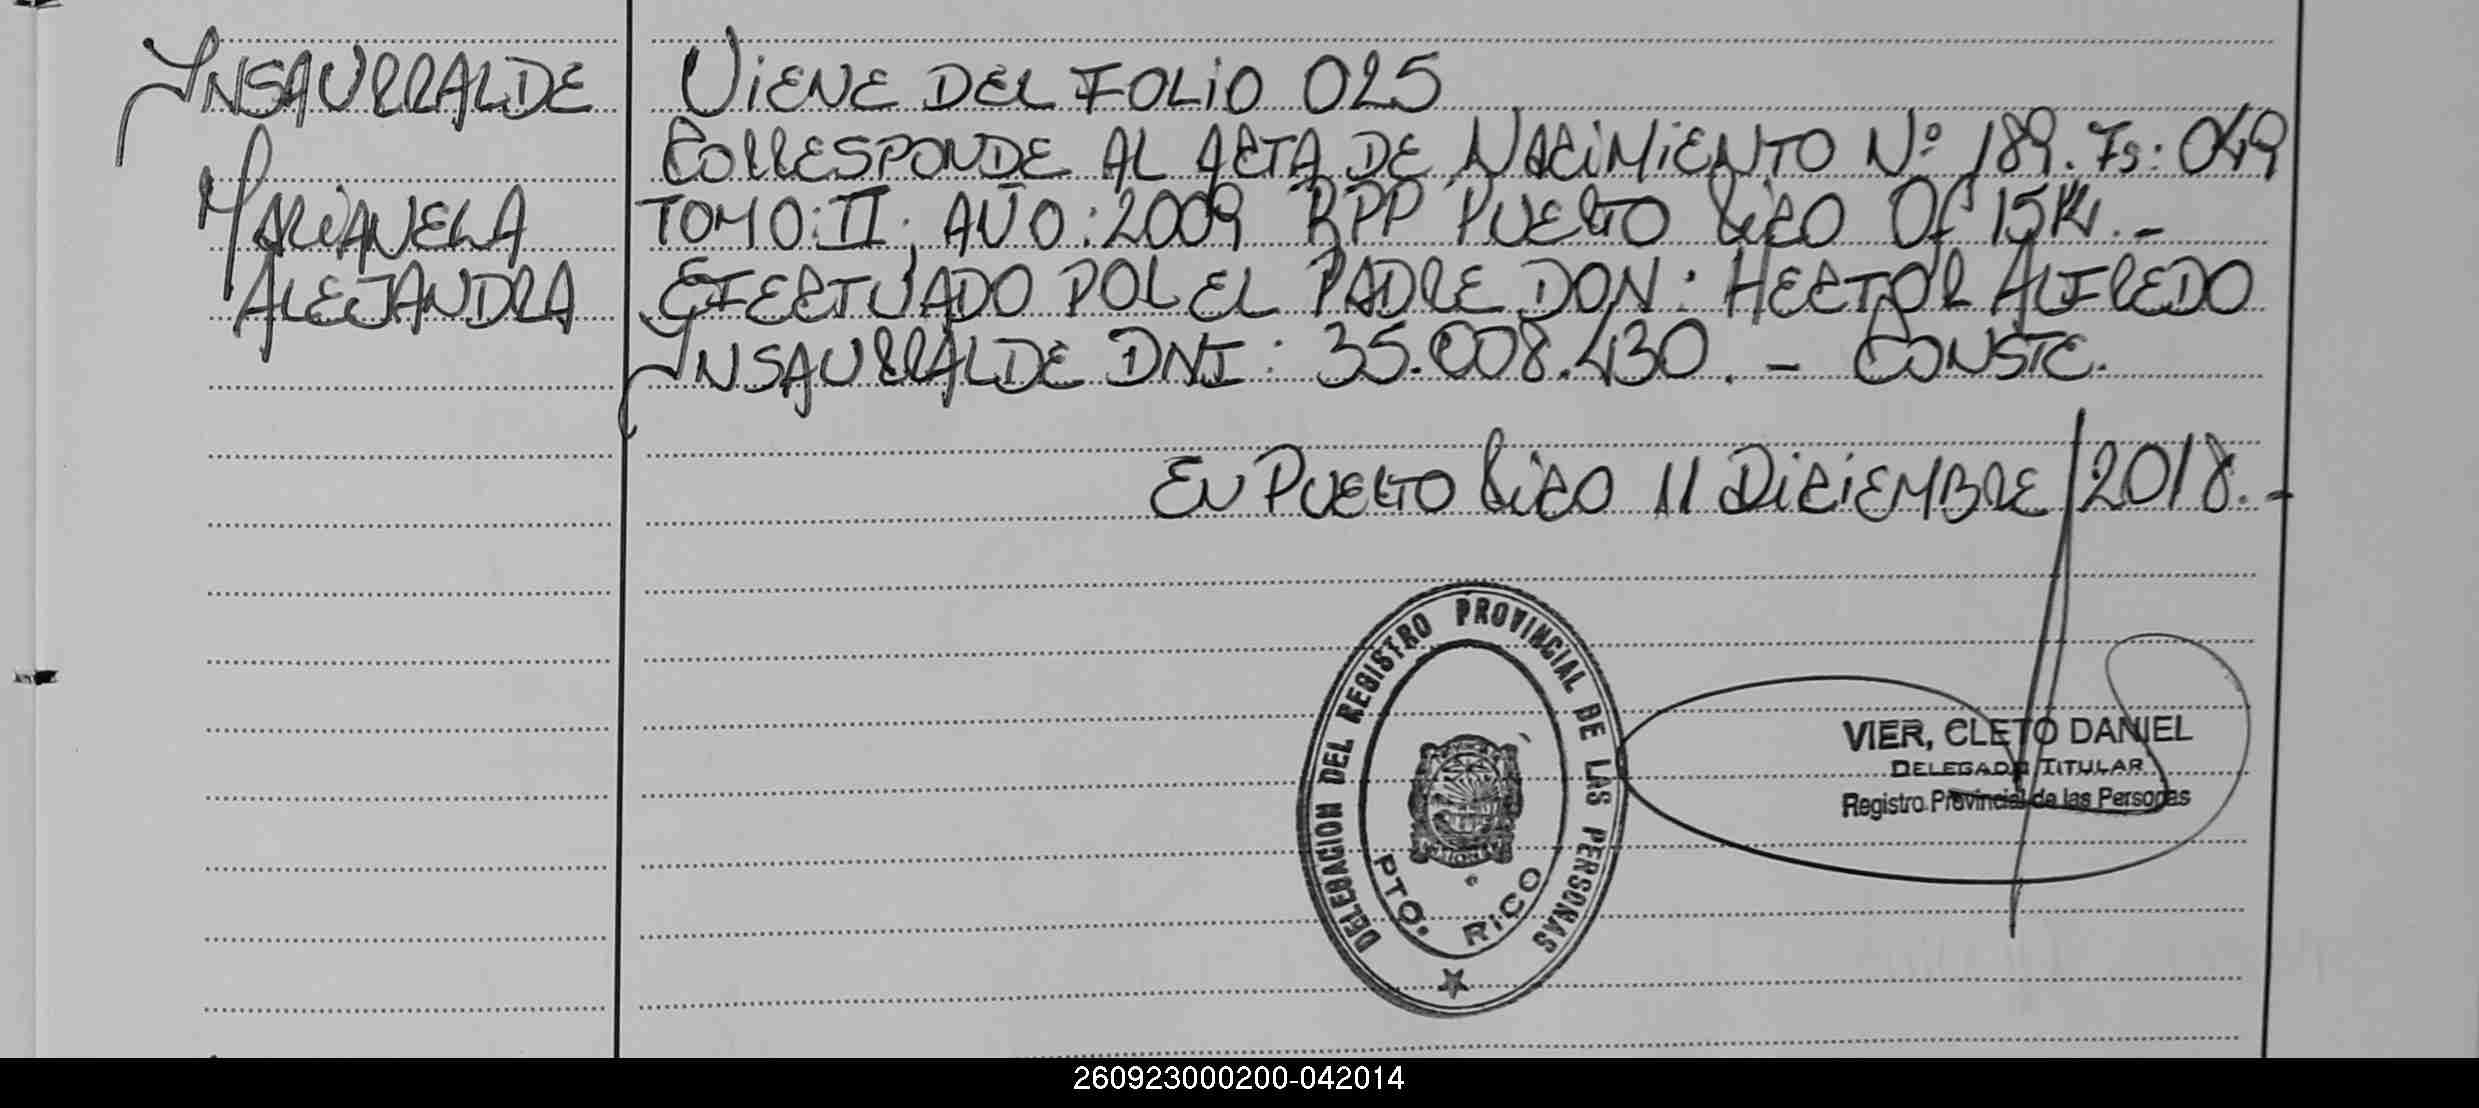 INSAURRALDE
MARIANELA
ALEJANDRA
VIENE DEL FOLIO 025
CORRESPONDE AL ACTA DE NACIMIENTO Nº 189. Fs: 049
TOMO: II. AÑO: 2009 RPP PUERTO RICO Of
EFECTUADO POR EL PADRE DON: HECTOR ALFREDO
INSAURRALDE DNI: 35.008.430. - CONSTE.
EN PUERTO RICO 11 DICIEMBRE 2018.-
DELEGACION DEL REGISTRO PROVINCIAL DE LAS PERSONAS
PTO. RICO
VIER, CLETO DANIEL
DELEGADO TITULAR
Registro Provincial de las Personas
260923000200-042014